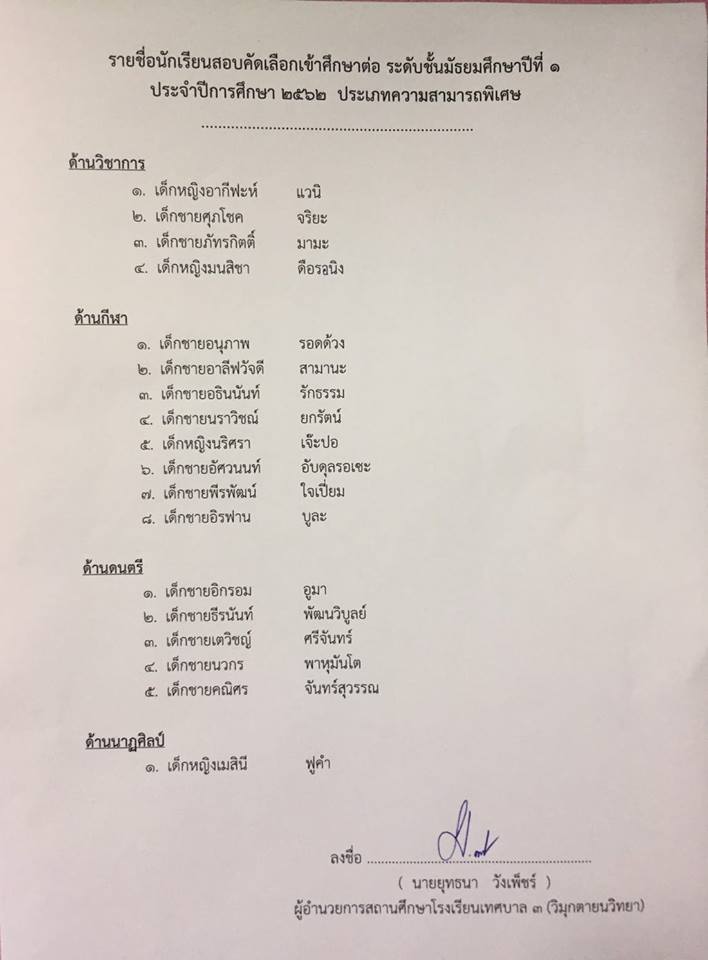 รายชื่อนักเรียนสอบคัดเลือกเข้าศึกษาต่อ ระดับชั้นมัธยมศึกษาปีที่ ๑
ประจำปีการศึกษา ๒๕๖๒ ประเภทความสามารถพิเศษ
ด้านวิชาการ
๑. เด็กหญิงอากีฟะห์ แวนิ
๒. เด็กชายศุภโชค จริยะ
๓. เด็กชายภัทรกิตติ์ มามะ
๔. เด็กหญิงมนสิชา ดือรอนิง
ด้านกีฬา
๑. เด็กชายอนุภาพ รอดด้วง
๒. เด็กชายอาลีฟวัจดี สามานะ
๓. เด็กชายอธินนันท์ รักธรรม
๔. เด็กชายนราวิชณ์ ยกรัตน์
๕. เด็กหญิงนริศรา เจ๊ะปอ
๖. เด็กชายอัศวนนท์ อับดุลรอเซะ
๗. เด็กชายพีรพัฒน์ ใจเปี่ยม
๘. เด็กชายอิรฟาน บูละ
ด้านดนตรี
๑. เด็กชายอิกรอม อูมา
๒. เด็กชายธีรนันท์ พัฒนวิบูลย์
๓. เด็กชายเตวิชญ์ ศรีจันทร์
๔. เด็กชายนวกร พาหุมันโต
๕. เด็กชายคณิศร จันทร์สุวรรณ
ด้านนาฏศิลป์
๑. เด็กหญิงเมสินี ฟูคำ
ลงชื่อ ............................................................
( นายยุทธนา วังเพ็ชร์ )
ผู้อำนวยการสถานศึกษาโรงเรียนเทศบาล ๓ (วิมุกตายนวิทยา)